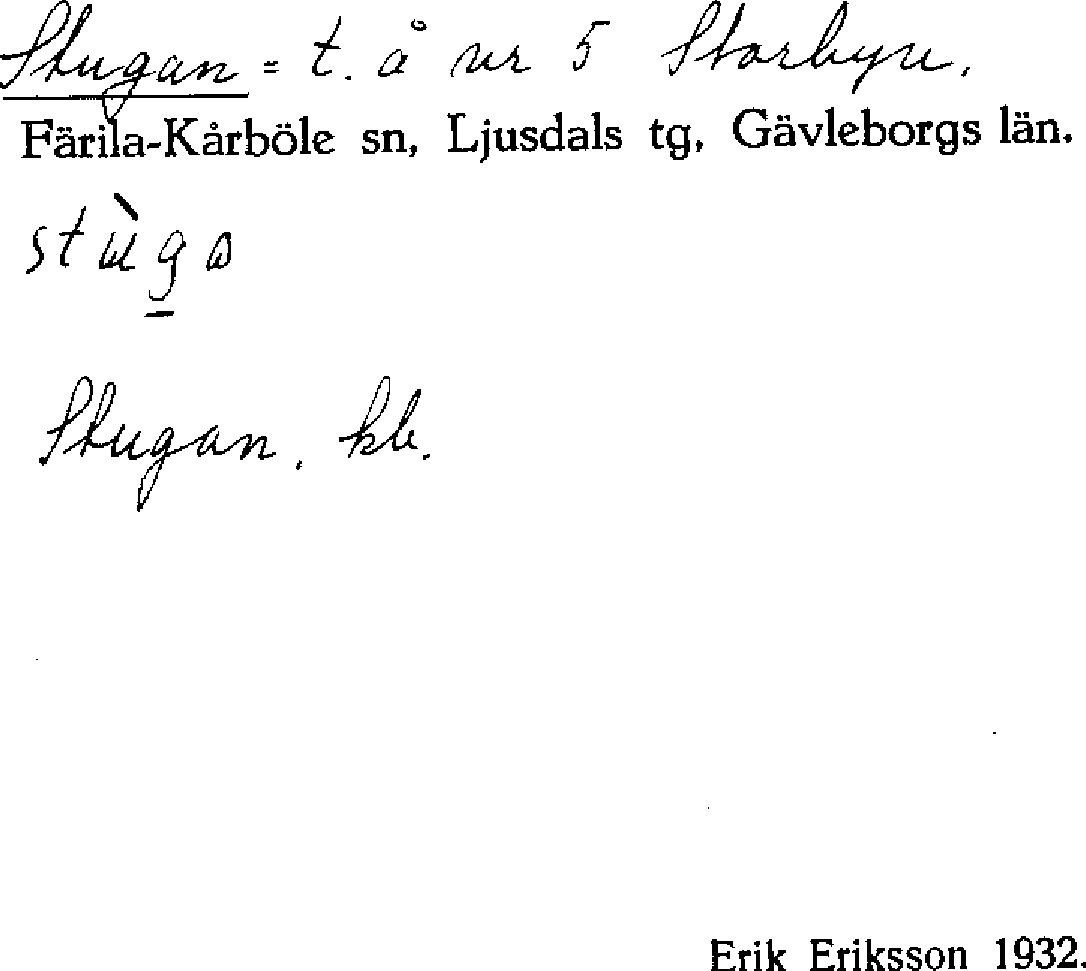 Stugan = t. å nr 5 Storbyn.
Färila-Kårböle sn, Ljusdals tg, Gävleborgs län.
Stugan. kb.
Erik Eriksson 1932.